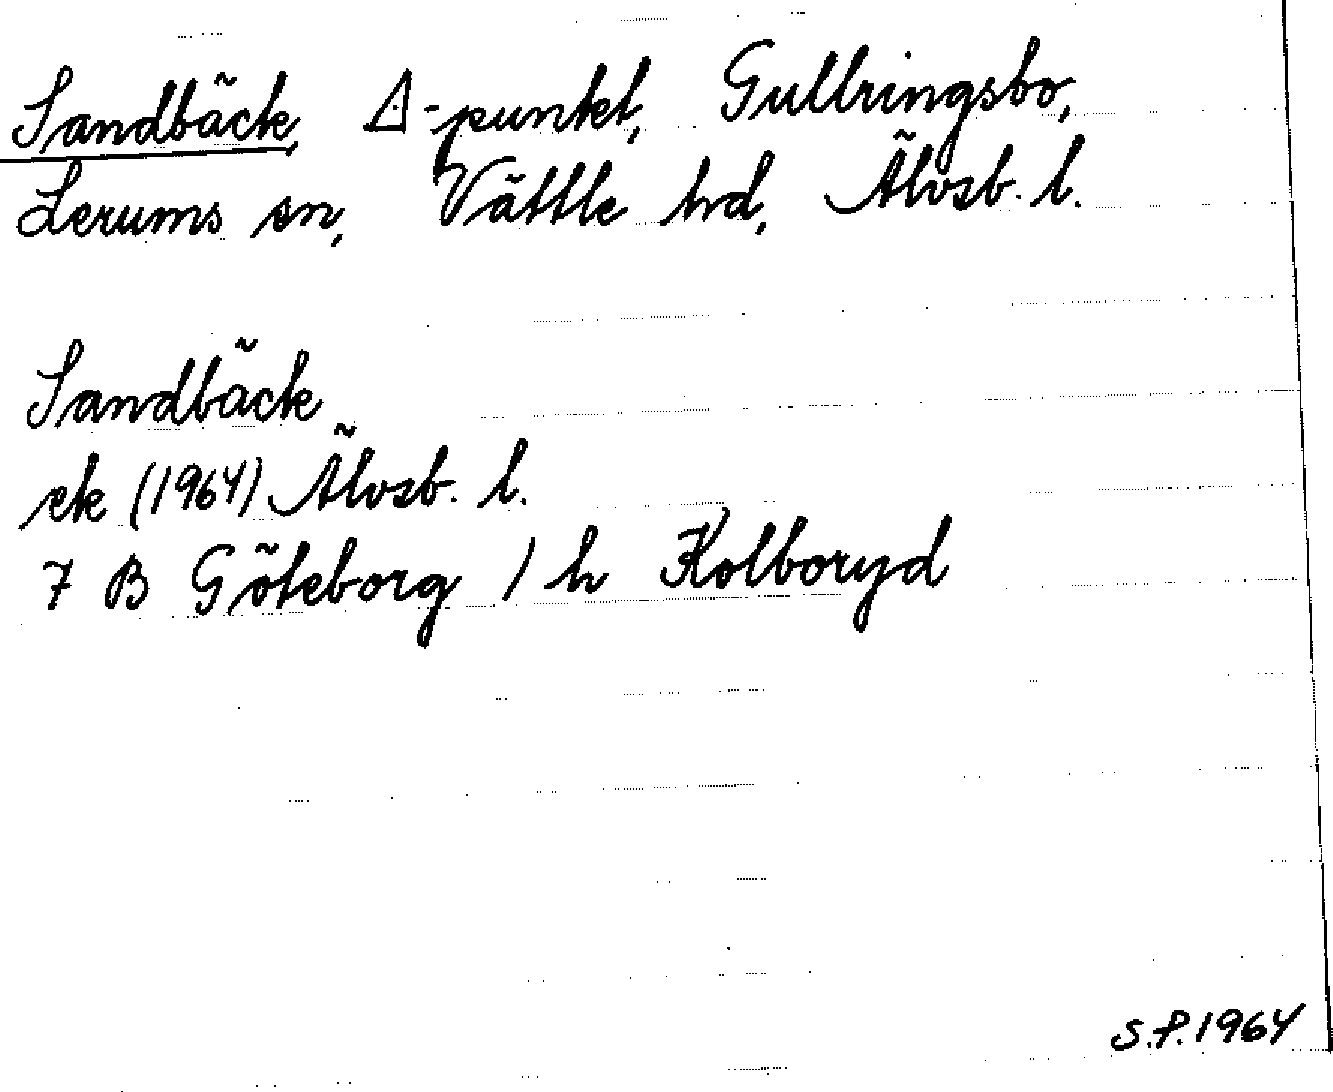 Sandbäck, Δ-punkt, Gullringsbo,
Lerums sn, Vättle hd, Älvsb. l.
Sandbäck
ek (1964) Älvsb. l.
7 B Göteborg 1 h Kolboryd
S.P. 1964